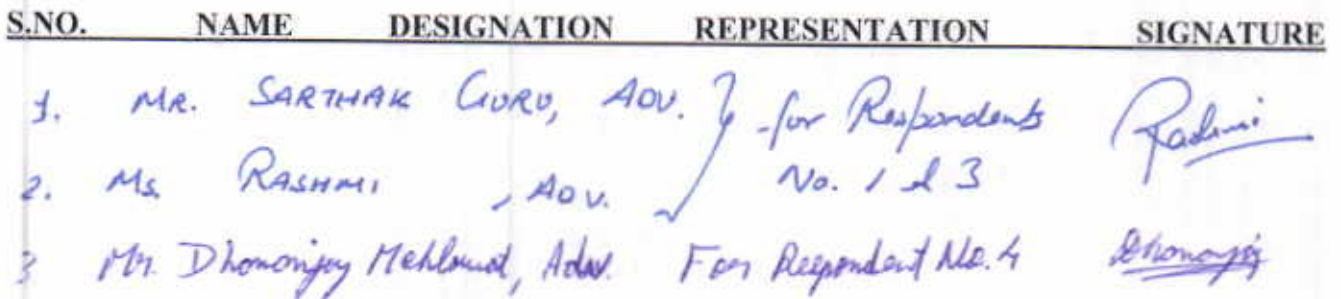 S.NO. NAME DESIGNATION REPRESENTATION SIGNATURE
1. MR. SARTHAK GURU, ADV. } for Respondents Rashmi
2. Ms. RASHMI , ADV. No. 1 & 3
3 Mr. Dhononjoy , Adv. For Respondent No. 4